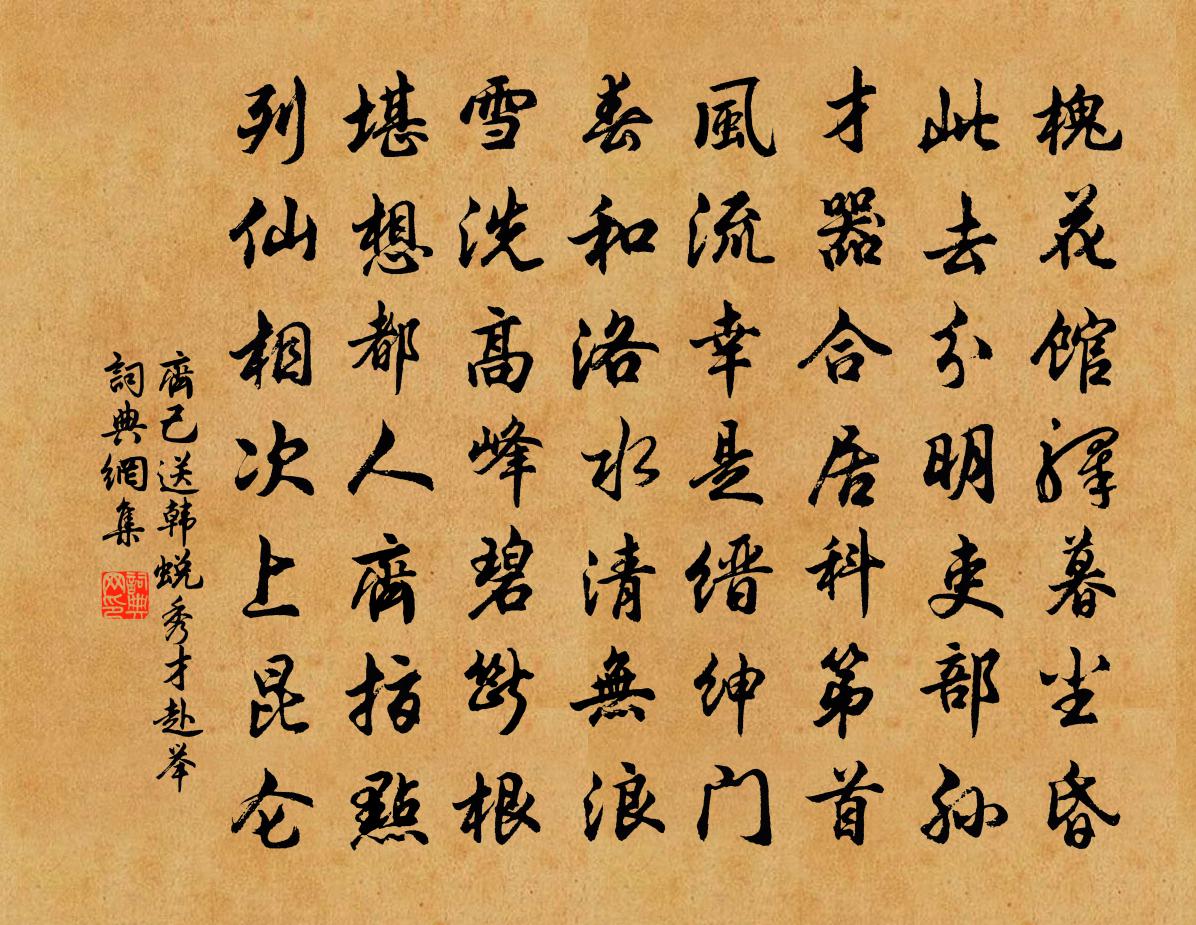 槐花館驛暮尘昏
此去分明吏部孙
才器合居科第首
風流幸是缙绅门
春和洛水清無浪
雪洗高峰碧断根
堪想都人齊指點
列仙相次上昆仑
齊己送韩蜕秀才赴举
詞典網集
詞典网印